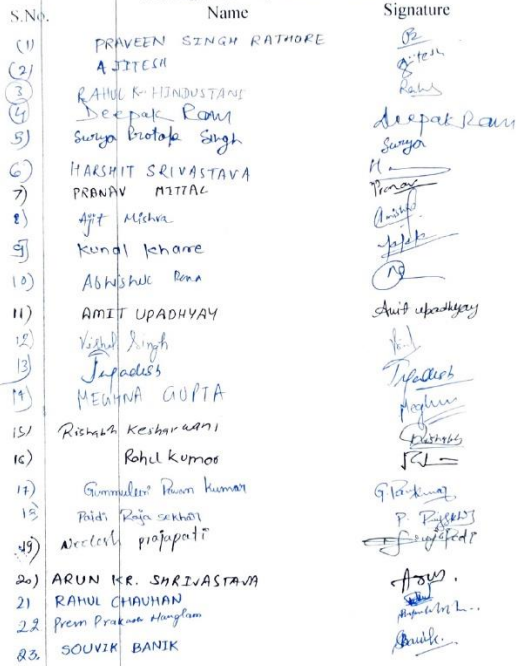 S.No. Name Signature
(1) PRAVEEN SINGH RATHORE
(2) AJITESH Ajitesh
(3) RAHUL K HINDUSTANI Rahul
(4) Deepak Ram Deepak Ram
5) Surya Protap Singh Surya
6) HARSHIT SRIVASTAVA H
7) PRANAV MITTAL Pranav
8) Ajit Mishra Amishra
9) Kunal khare
10) Abhishek Rana
11) AMIT UPADHYAY Amit upadhyay
12) Vishal Singh
13) Jagadish Jagadish
14) MEGHNA GUPTA Meghna
15) Rishabh Kesharwani Rishabh
16) Rahul Kumar
17) Gummuleri Pavan Kumar G. Pavan Kumar
18 Paidi Raja sekhar P. Raja
19) Neelesh prajapati prajapati
20) ARUN KR. SHRIVASTAVA Arun.
21 RAHUL CHAUHAN
22 Prem Prakash Hanglam
23. SOUVIK BANIK Banik.